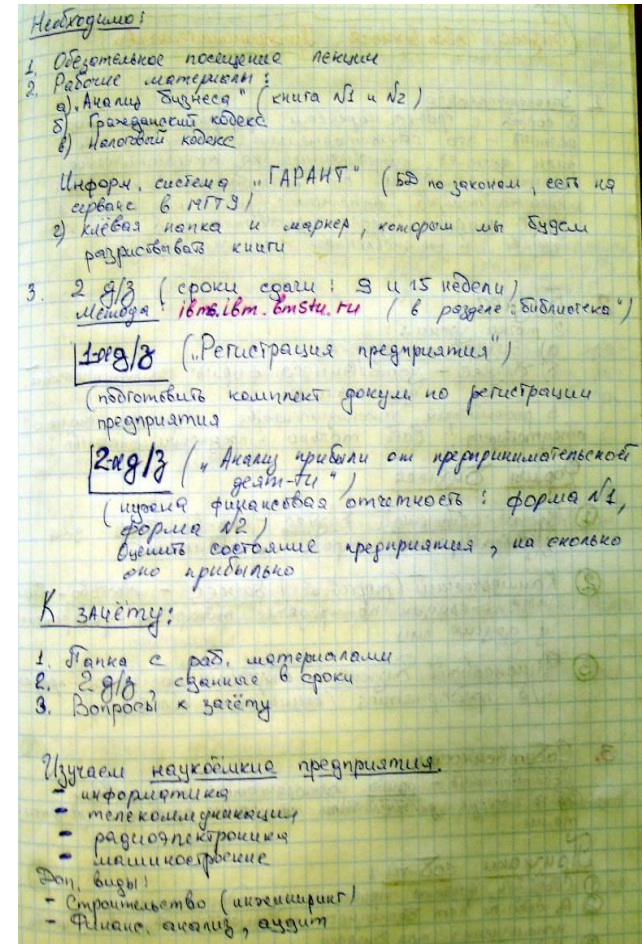 Необходимо:
1. Обезательное посещение лекции
2. Рабочие материалы:
а) „Анализ бизнеса" (книга №1 и №2)
б) Гражданский кодекс
в) Налоговый кодекс
Информ. система „ГАРАНТ" (БД по законам, есть на
сервапе в МГТУ)
г) клёвая папка и маркер, которым мы будем
разрисовывать книги
3. 2 д/з (сроки сдачи: 9 и 15 недели)
Метода: ibm6.ibm.bmstu.ru (в разделе „библиотека")
1-ое д/з („Регистрация предприятия")
(подготовить комплект докум. по регистрации
предприятия
2-ое д/з („Анализ прибыли от предпринимательской
деят-ти")
(нужна финансовая отчетность: форма №1,
форма №2)
Оценить состояние предприятия, на сколько
оно прибыльно
К зачёту:
1. Папка с раб. материалами
2. 2 д/з, сданные в сроки
3. Вопросы к зачёту
Изучаем наукоёмкие предприятия.
- информатика
- телекоммуникация
- радиоэлектроника
- машиностроение
Доп. виды:
- Строительство (инжениринг)
- Финанс. анализ, аудит